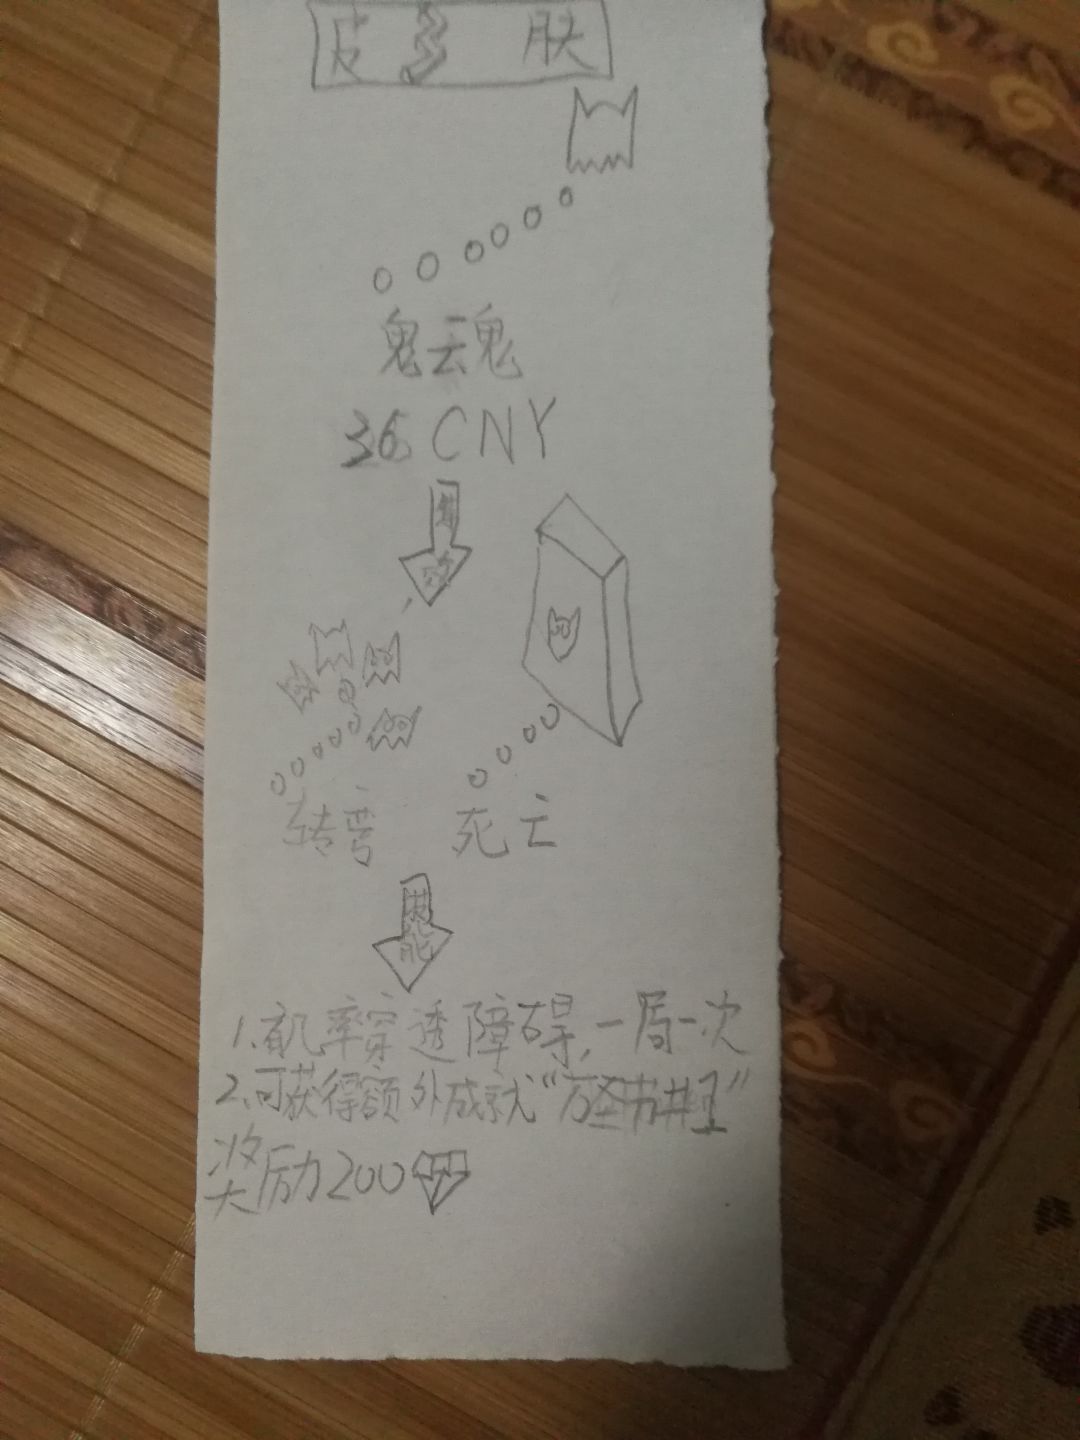 皮 肤
鬼云鬼
36 CNY
特效
转弯 死亡
功能
1.有几率穿透障碍,一局一次
2.可获得额外成就“万圣节”
奖励200